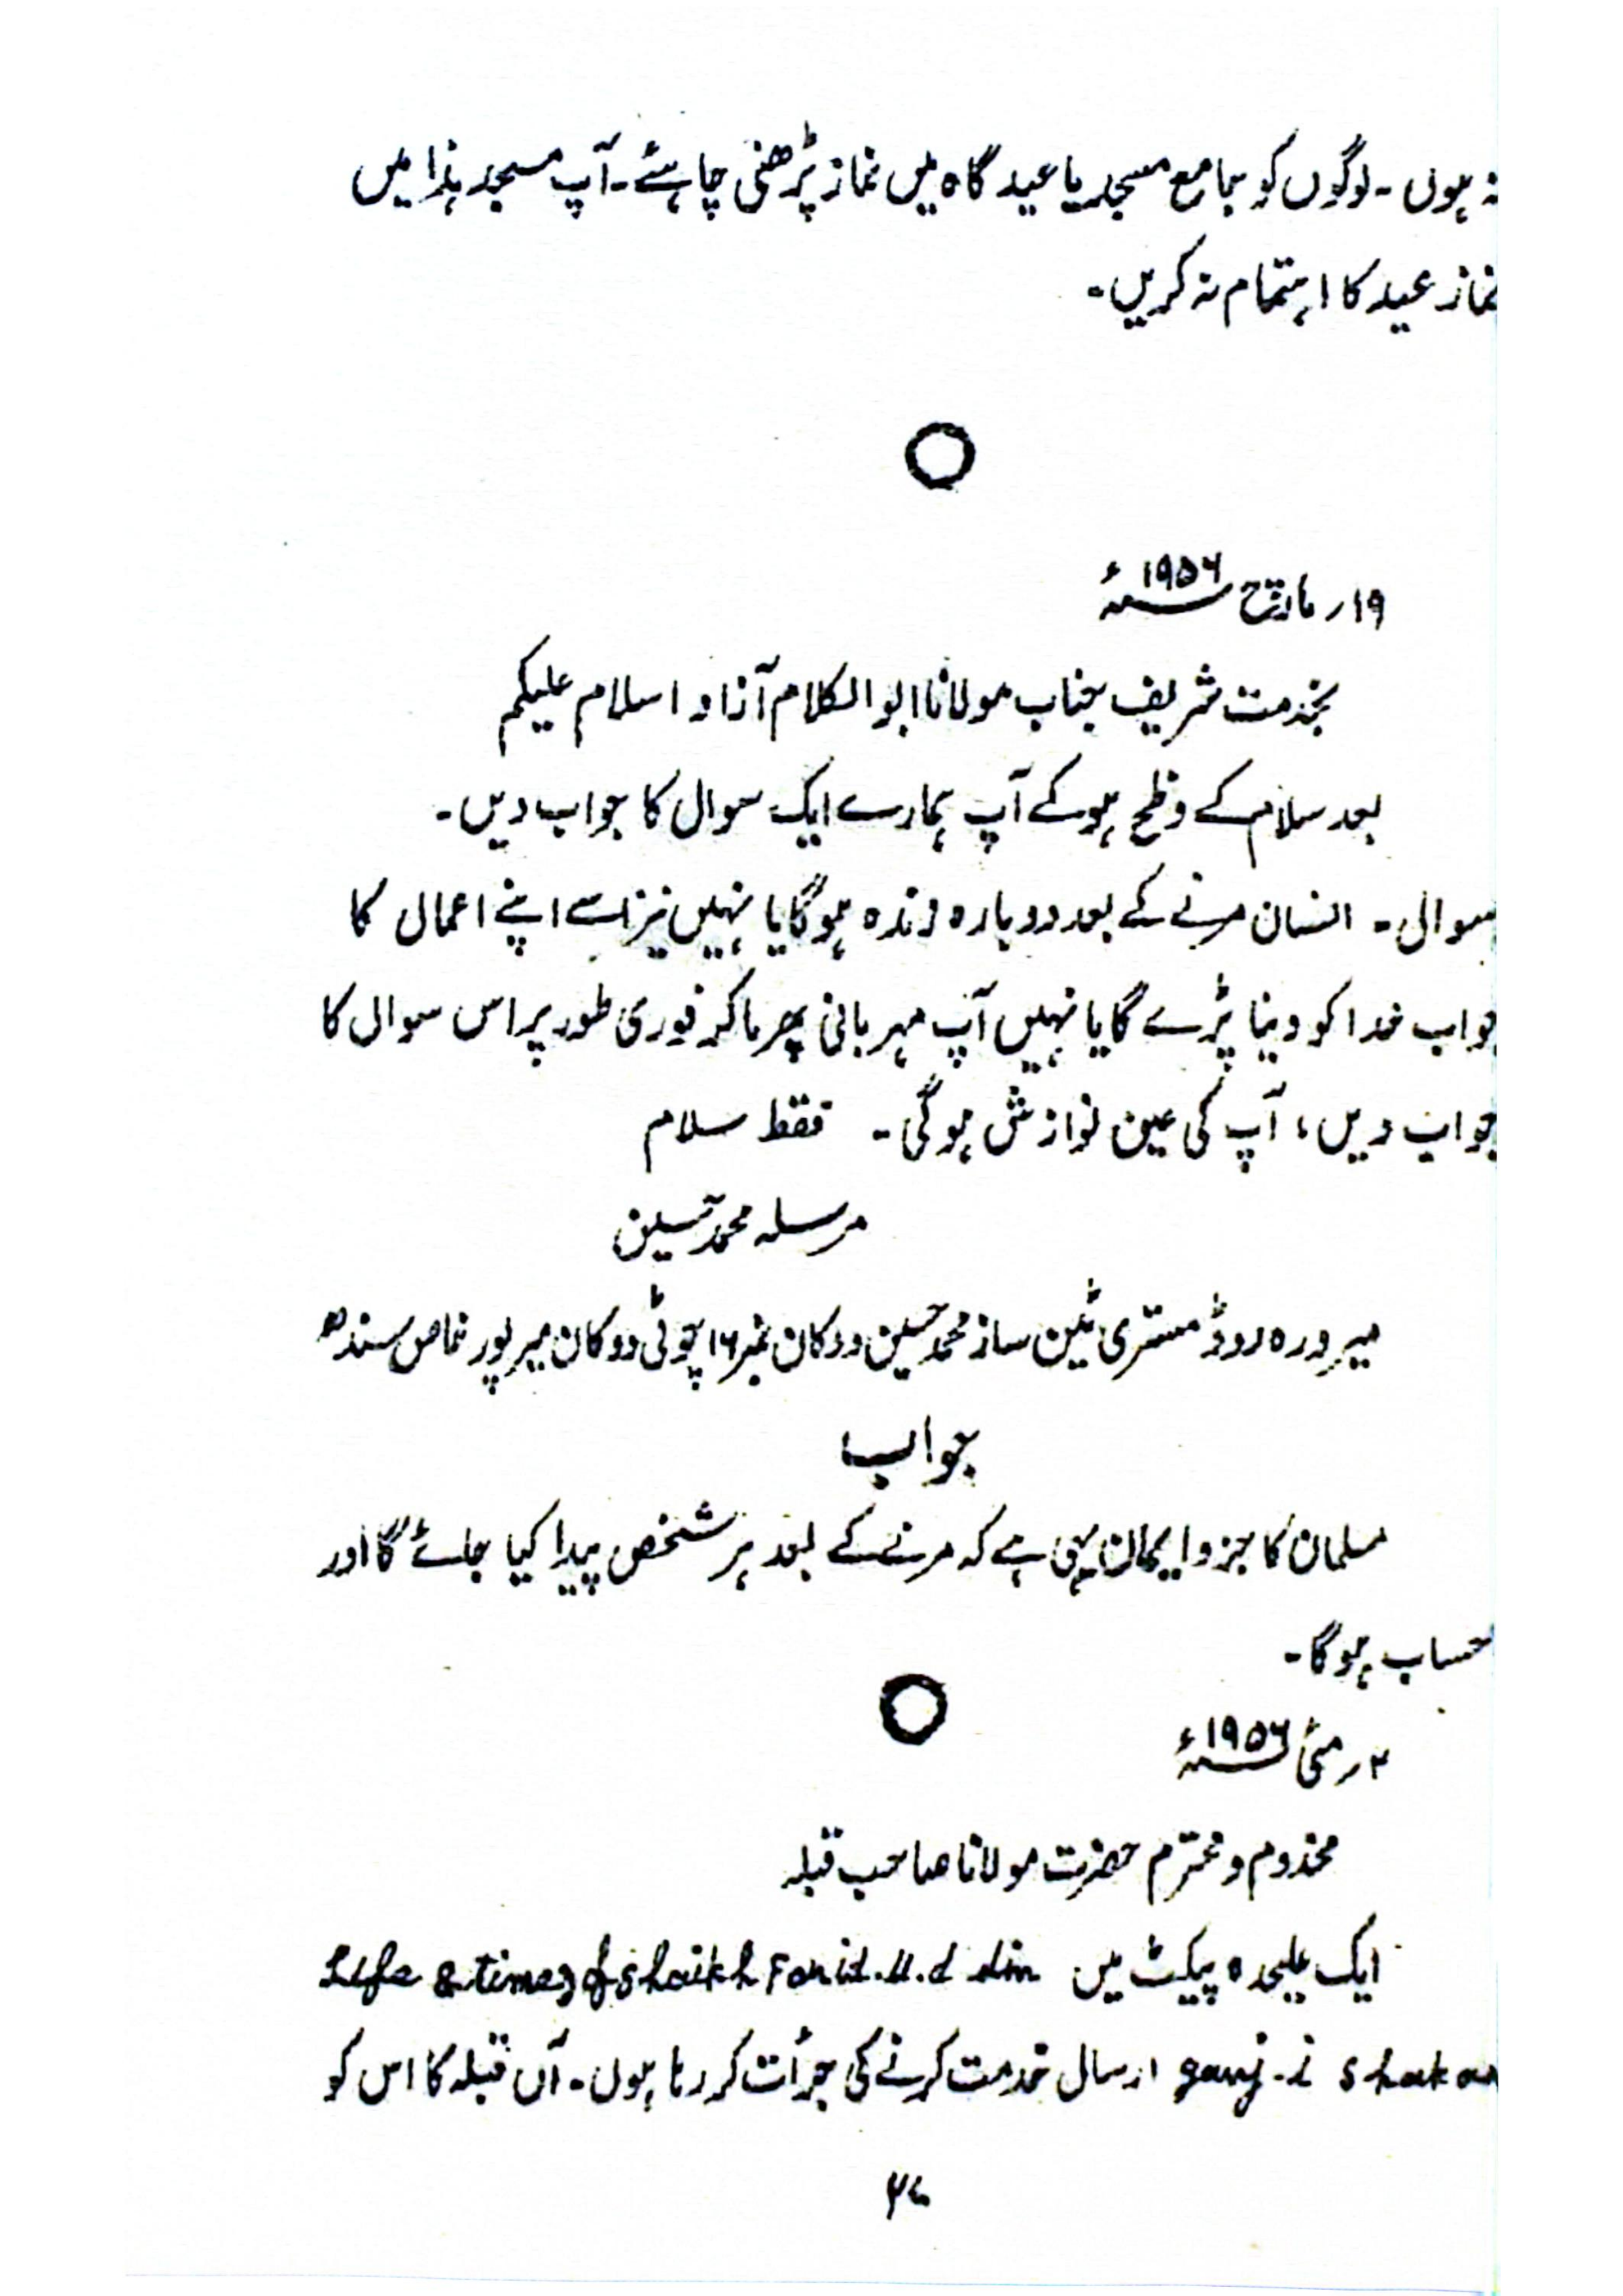 نہ ہوں ۔ لوگوں کو جامع مسجد یا عید گاہ میں نماز پڑھنی چاہئے ۔ آپ مسجد ہذا میں
نماز عید کا اہتمام نہ کریں ۔
۱۹ر مارچ ۱۹۵۶ء
بخدمت شریف جناب مولانا ابو الکلام آزاد اسلام علیکم
بعد سلام کے وظح ہو کے آپ ہمارے ایک سوال کا جواب دیں ۔
سوال ۔ انسان مرنے کے بعد دوبارہ زندہ ہوگا یا نہیں نیز اسے اپنے اعمال کا
جواب خدا کو دینا پڑے گا یا نہیں آپ مہربانی پھرما کر فوری طور پر اس سوال کا
جواب دیں ، آپ کی عین نوازش ہوگی ۔ فقط سلام
مرسلہ محمد حسین
میروره روڈ مستری ٹین ساز محمد حسین دوکان نمبر ۱۶ چوٹی دوکان میر پور خاص سندھ
جواب
مسلمان کا جزو ایمان یہی ہے کہ مرنے کے بعد ہر شخص پیدا کیا جائے گا اور
حساب ہوگا ۔
۲ر مئی ۱۹۵۶ء
مخدوم و محترم حضرت مولانا صاحب قبلہ
ایک علیحدہ پیکٹ میں Life & times of Shaikh Farid.u.d din
ganj-i shakar ارسال خدمت کرنے کی جرأت کر رہا ہوں ۔ آں قبلہ کا اس کو